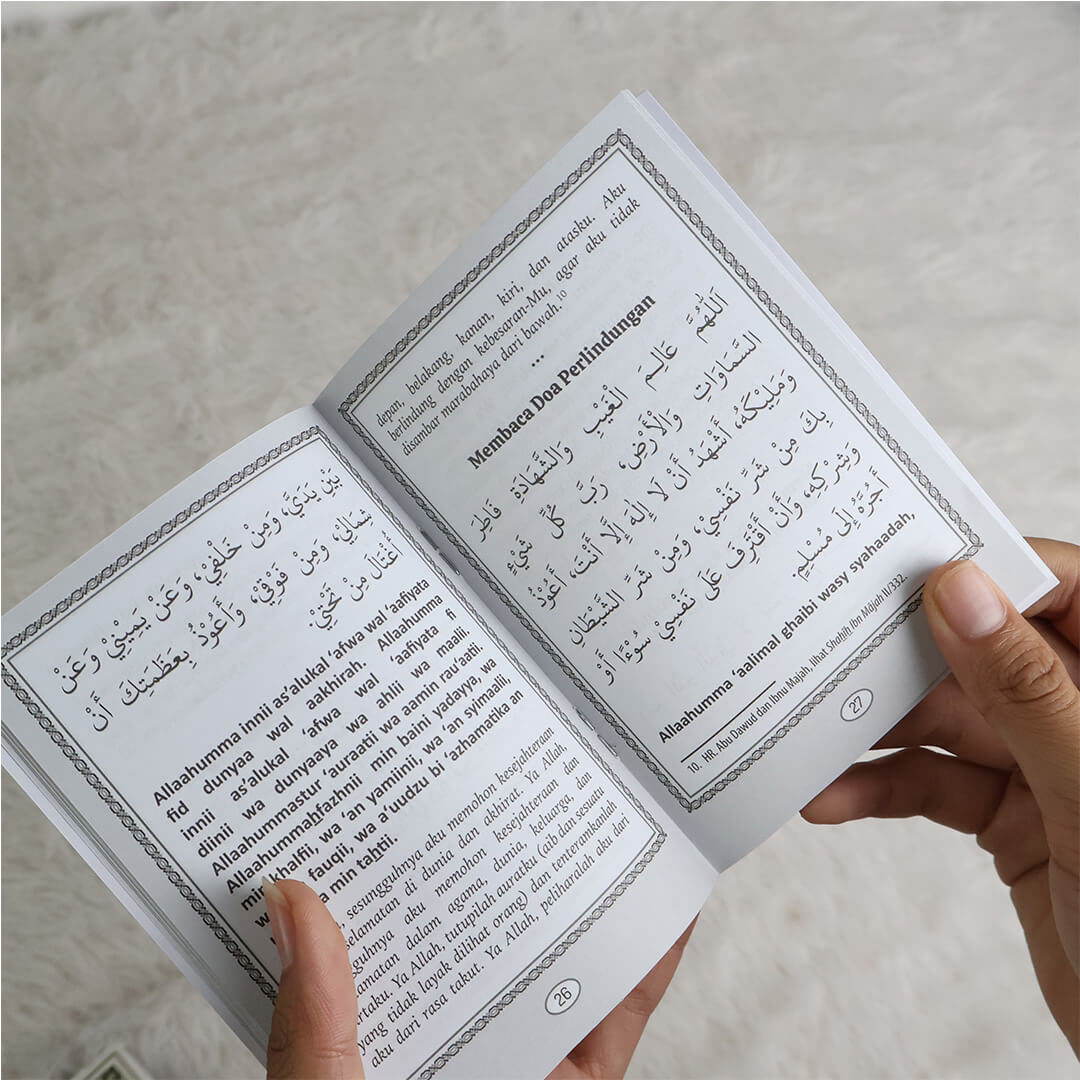 بَيْنِ يَدَيَّ، وَمِنْ خَلْفِيْ، وَعَنْ يَمِيْنِيْ وَعَنْ
شِمَالِيْ، وَمِنْ فَوْقِيْ، وَأَعُوْذُ بِعَظَمَتِكَ أَنْ
أُغْتَالَ مِنْ تَحْتِيْ.
Allaahumma innii as'alukal 'afwa wal 'aafiyata
fid dunyaa wal aakhirah. Allaahumma
innii as'alukal 'afwa wal 'aafiyata fi
diinii wa dunyaaya wa ahlii wa maalii.
Allaahummastur 'auraatii wa aamin rau'aatii.
Allaahummahfazhnii mim baini yadayya, wa
min khalfii, wa 'an yamiinii, wa 'an syimaalii,
fauqii, wa a'uudzu bi 'azhamatika an
min tahtii.
sesungguhnya aku memohon kesejahteraan
selamatan di dunia dan akhirat. Ya Allah,
aku memohon kesejahteraan dan
dalam agama, dunia, keluarga, dan
Ya Allah, tutupilah auratku (aib dan sesuatu
yang tidak layak dilihat orang) dan tenteramkanlah
aku dari rasa takut. Ya Allah, peliharalah aku dari
26
depan, belakang, kanan, kiri, dan atasku. Aku
berlindung dengan kebesaran-Mu, agar aku tidak
disambar marabahaya dari bawah.10
•••
Membaca Doa Perlindungan
اَللّٰهُمَّ عَالِمَ الْغَيْبِ وَالشَّهَادَةِ فَاطِرَ
السَّمَاوَاتِ وَالْأَرْضِ، رَبَّ كُلِّ شَيْءٍ
وَمَلِيْكَهُ، أَشْهَدُ أَنْ لَا إِلٰهَ إِلَّا أَنْتَ، أَعُوْذُ
بِكَ مِنْ شَرِّ نَفْسِيْ، وَمِنْ شَرِّ الشَّيْطَانِ
وَشِرْكِهِ، وَأَنْ أَقْتَرِفَ عَلَى نَفْسِيْ سُوْءًا أَوْ
أَجُرَّهُ إِلَى مُسْلِمٍ.
Allaahumma 'aalimal ghaibi wasy syahaadah,
10. HR. Abu Dawud dan Ibnu Majah, lihat Shahih Ibn Majah II/332.
27